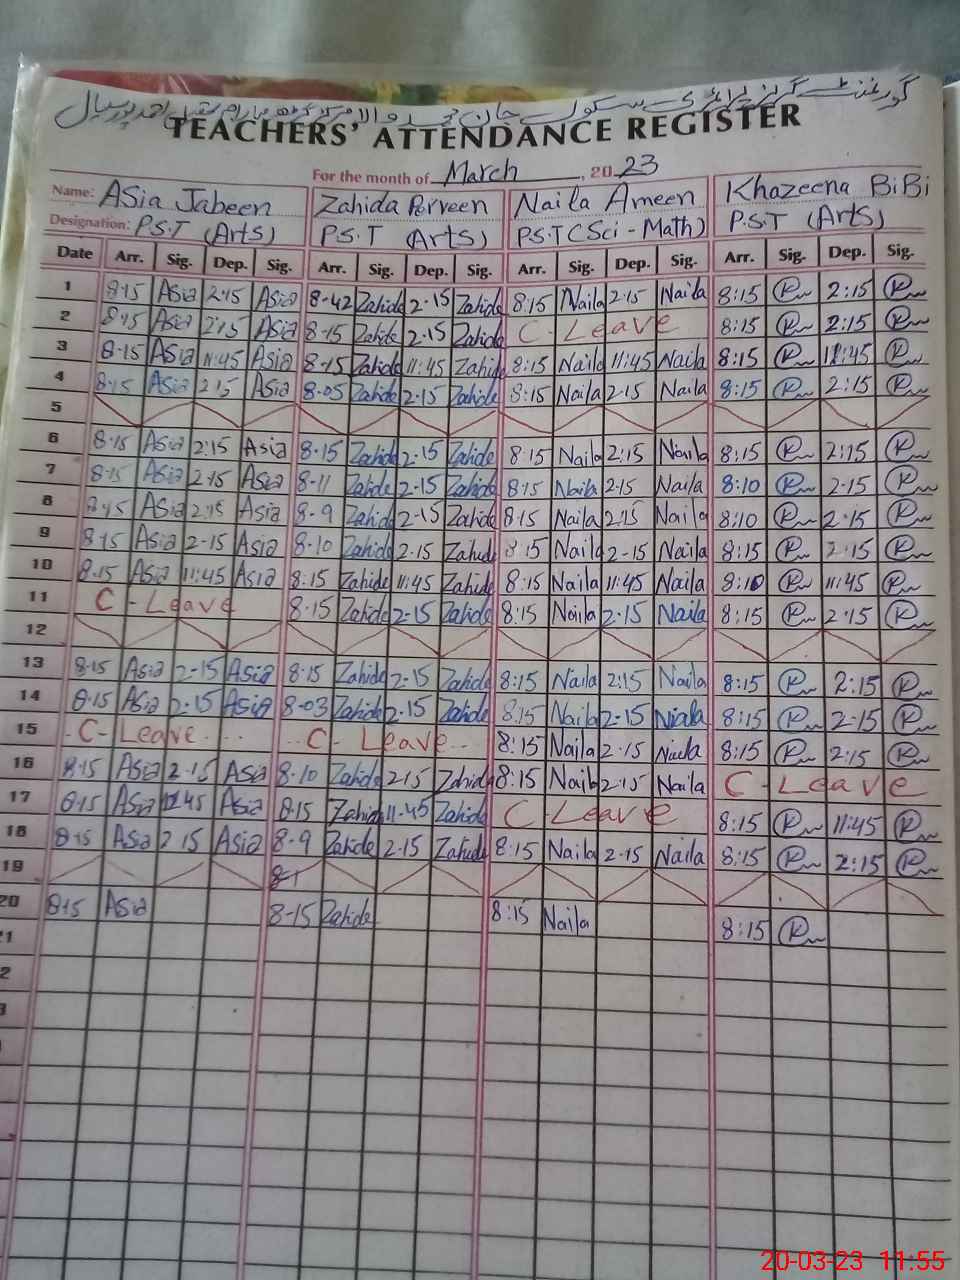 گورنمنٹ گرلز پرائمری سکول جان محمد والا مرکز گڑھ مہاراجہ احمد پور سیال
TEACHERS' ATTENDANCE REGISTER
For the month of March, 2023
Name: Asia Jabeen Zahida Perveen Naila Ameen Khazeena BiBi
Designation: P.S.T (Arts) P.S.T (Arts) P.S.T (Sci - Math) P.S.T (Arts)
Date Arr. Sig. Dep. Sig. Arr. Sig. Dep. Sig. Arr. Sig. Dep. Sig. Arr. Sig. Dep. Sig.
1 8-15 Asia 2-15 Asia 8-42 Zahide 2-15 Zahide 8:15 Naila 2:15 Naila 8:15 R 2:15 R
2 8-15 Asia 2:15 Asia 8-15 Zahide 2-15 Zahide C - Leave 8:15 R 2:15 R
3 8-15 Asia 11:45 Asia 8-15 Zahide 11:45 Zahide 8:15 Naila 11:45 Naila 8:15 R 11:45 R
4 8:15 Asia 2:15 Asia 8-05 Zahide 2-15 Zahide 8:15 Naila 2-15 Naila 8:15 R 2:15 R
5
6 8-15 Asia 2:15 Asia 8-15 Zahide 2-15 Zahide 8:15 Naila 2:15 Naila 8:15 R 2:15 R
7 8-15 Asia 2:15 Asia 8-11 Zahide 2-15 Zahide 8:15 Naila 2-15 Naila 8:10 R 2-15 R
8 8-15 Asia 2:15 Asia 8-9 Zahide 2-15 Zahide 8:15 Naila 2:15 Naila 8:10 R 2-15 R
9 8-15 Asia 2-15 Asia 8-10 Zahide 2.15 Zahide 8:15 Naila 2-15 Naila 8:15 R 2-15 R
10 8-15 Asia 11:45 Asia 8:15 Zahide 11:45 Zahide 8:15 Naila 11:45 Naila 8:10 R 11:45 R
11 C - Leave 8:15 Zahide 2-15 Zahide 8:15 Naila 2:15 Naila 8:15 R 2:15 R
12
13 8-15 Asia 2-15 Asia 8-15 Zahide 2-15 Zahide 8:15 Naila 2:15 Naila 8:15 R 2:15 R
14 8-15 Asia 2-15 Asia 8-03 Zahide 2-15 Zahide 8:15 Naila 2-15 Niala 8:15 R 2-15 R
15 C - Leave C - Leave 8:15 Naila 2-15 Niala 8:15 R 2:15 R
16 8-15 Asia 2-15 Asia 8-10 Zahide 2:15 Zahide 8:15 Naila 2:15 Naila C - Leave
17 8-15 Asia 11:45 Asia 8:15 Zahide 11-45 Zahide C - Leave 8:15 R 11:45 R
18 8-15 Asia 2-15 Asia 8-9 Zahide 2-15 Zahide 8:15 Naila 2-15 Naila 8:15 R 2:15 R
19 8-1
20 8-15 Asia 8-15 Zahide 8:15 Naila 8:15 R
20-03-23 11:55